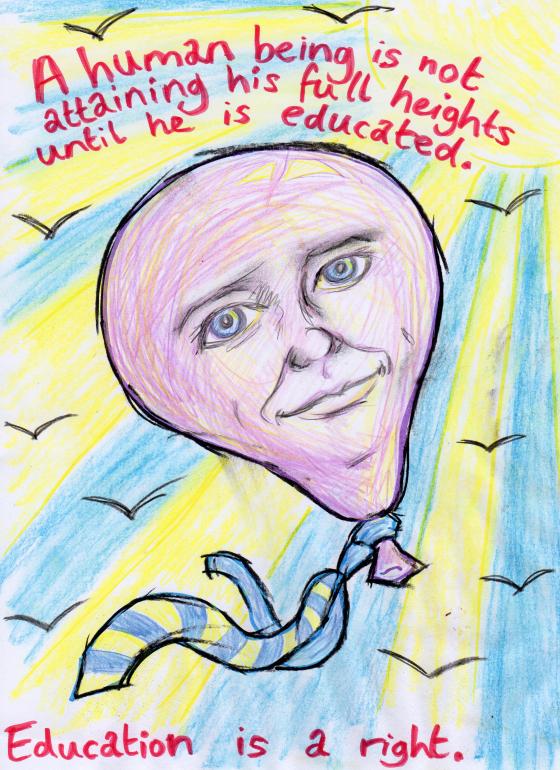 A human being is not
attaining his full heights
until he is educated.
Education is a right.